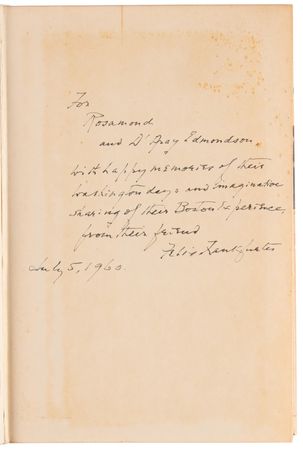 For
Rosamond
and D'Arcy Edmondson
with happy memories of their
Washington days and imaginative
sharing of their Boston Experience,
from their friend
Felix Frankfurter
July 5, 1960.